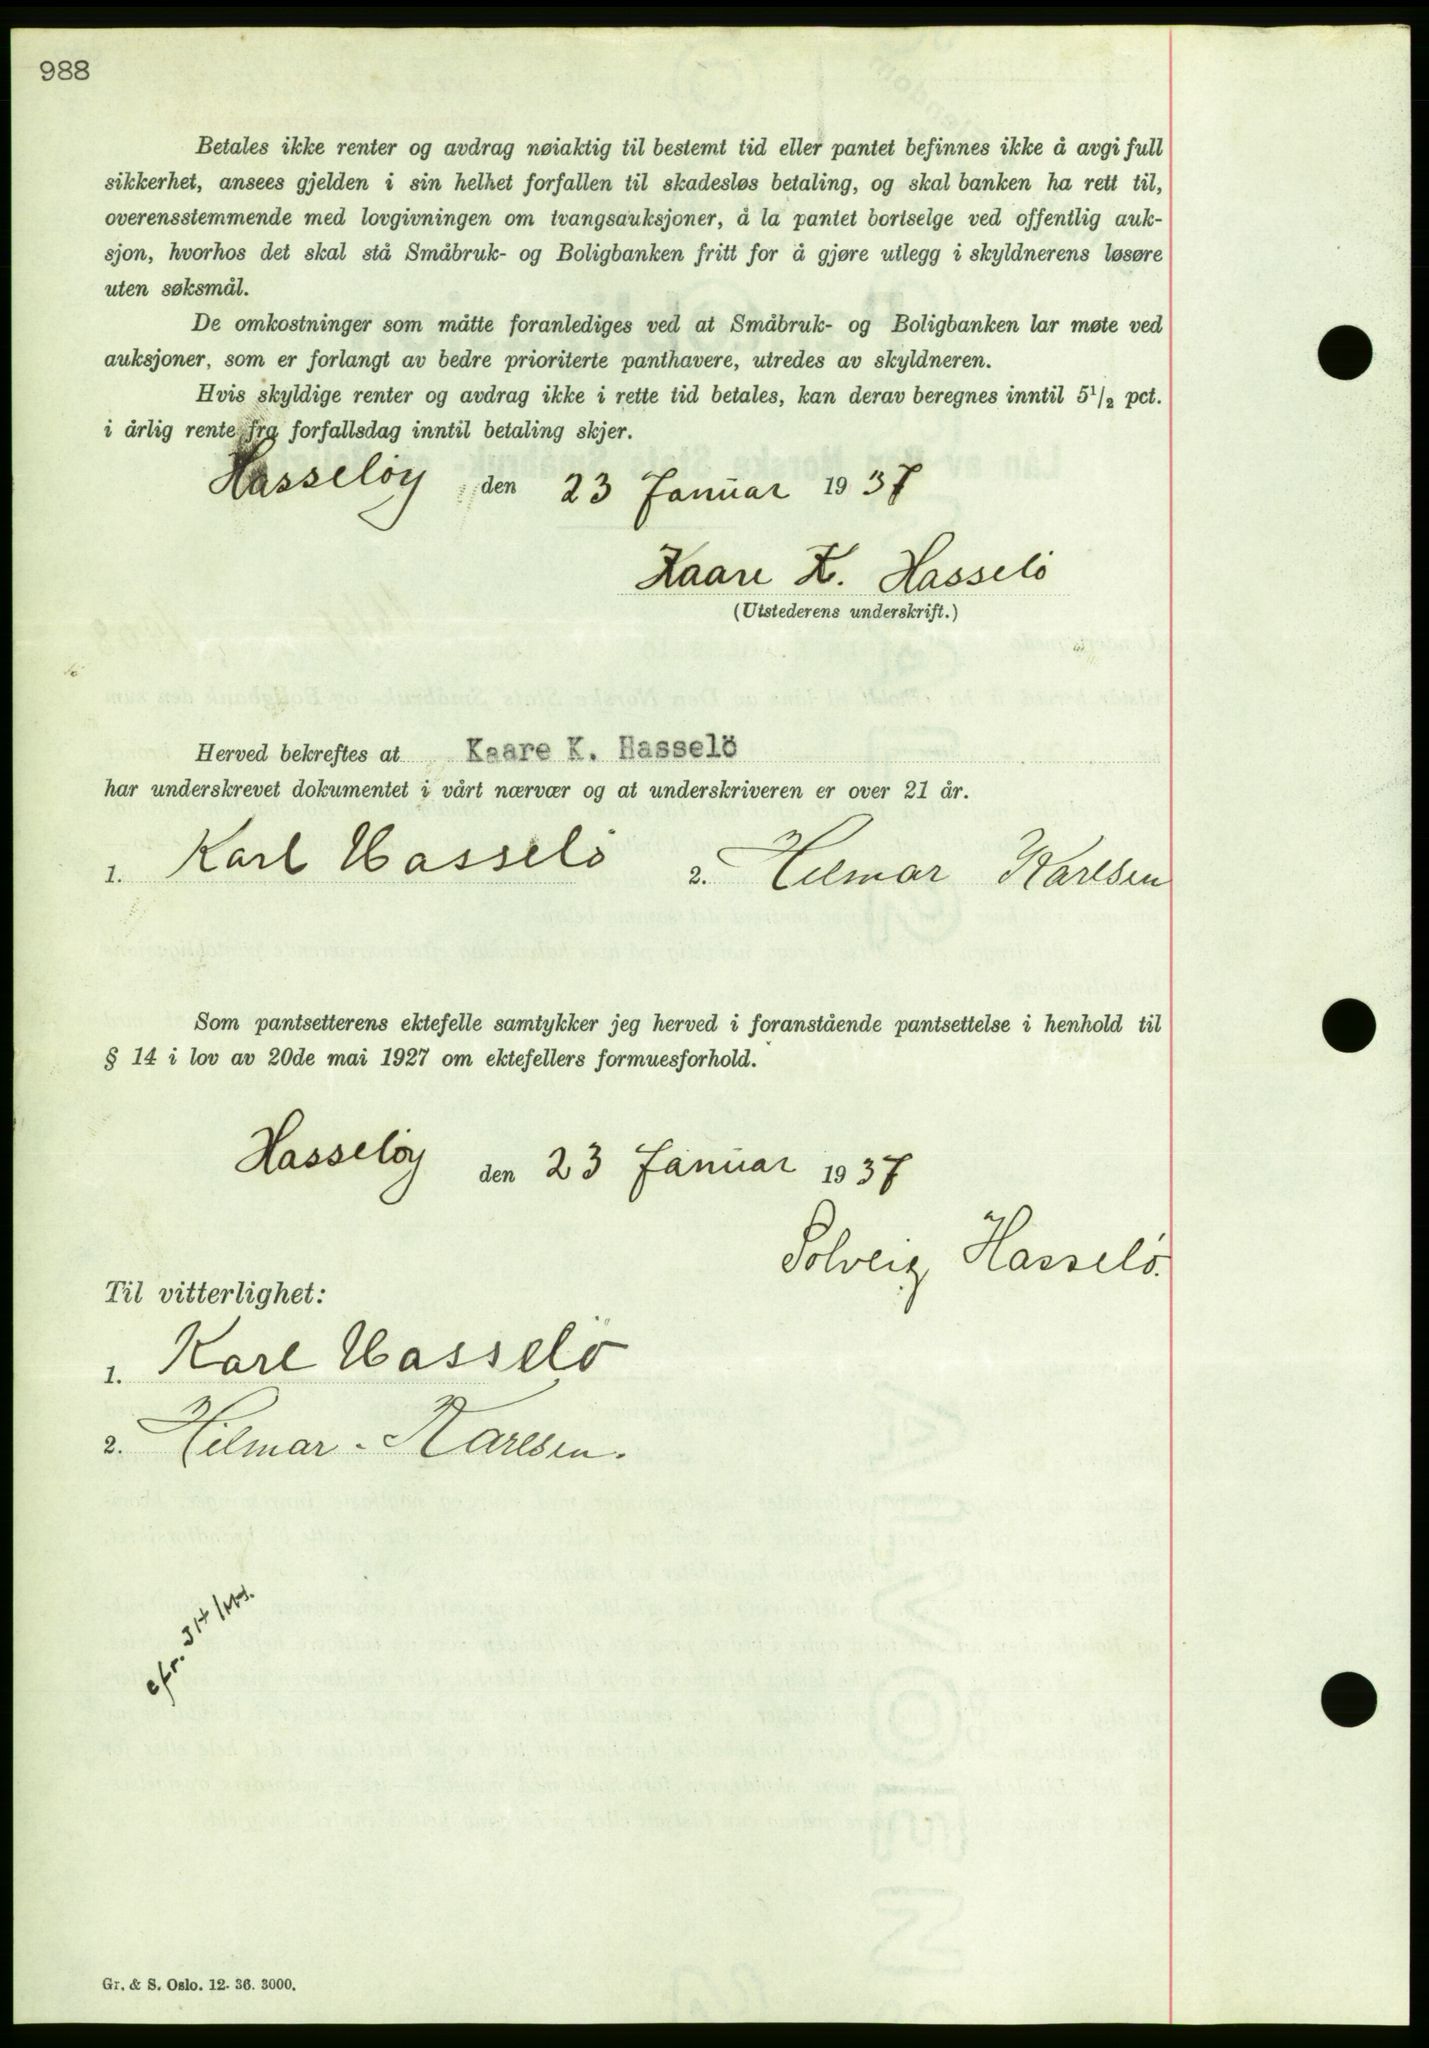 988
Betales ikke renter og avdrag nøiaktig til bestemt tid eller pantet befinnes ikke å avgi full
sikkerhet, ansees gjelden i sin helhet forfallen til skadesløs betaling, og skal banken ha rett til,
overensstemmende med lovgivningen om tvangsauksjoner, å la pantet bortselge ved offentlig auk-
sjon, hvorhos det skal stå Småbruk- og Boligbanken fritt for å gjøre utlegg i skyldnerens løsøre
uten søksmål.
De omkostninger som måtte foranlediges ved at Småbruk- og Boligbanken lar møte ved
auksjoner, som er forlangt av bedre prioriterte panthavere, utredes av skyldneren.
Hvis skyldige renter og avdrag ikke i rette tid betales, kan derav beregnes inntil 5 1/2 pct.
i årlig rente fra forfallsdag inntil betaling skjer.
Hasseløy den 23 Januar 1937
Kaare K. Hasselö
(Utstederens underskrift.)
Herved bekreftes at Kaare K. Hasselö
har underskrevet dokumentet i vårt nærvær og at underskriveren er over 21 år.
1. Karl Hasselö 2. Hilmar Karlsen
Som pantsetterens ektefelle samtykker jeg herved i foranstående pantsettelse i henhold til
§ 14 i lov av 20de mai 1927 om ektefellers formuesforhold.
Hasseløy den 23 Januar 1937
Solveig Hasselö.
Til vitterlighet:
1. Karl Hasselö
2. Hilmar Karlsen.
Gr. & S. Oslo. 12- 36. 3000.